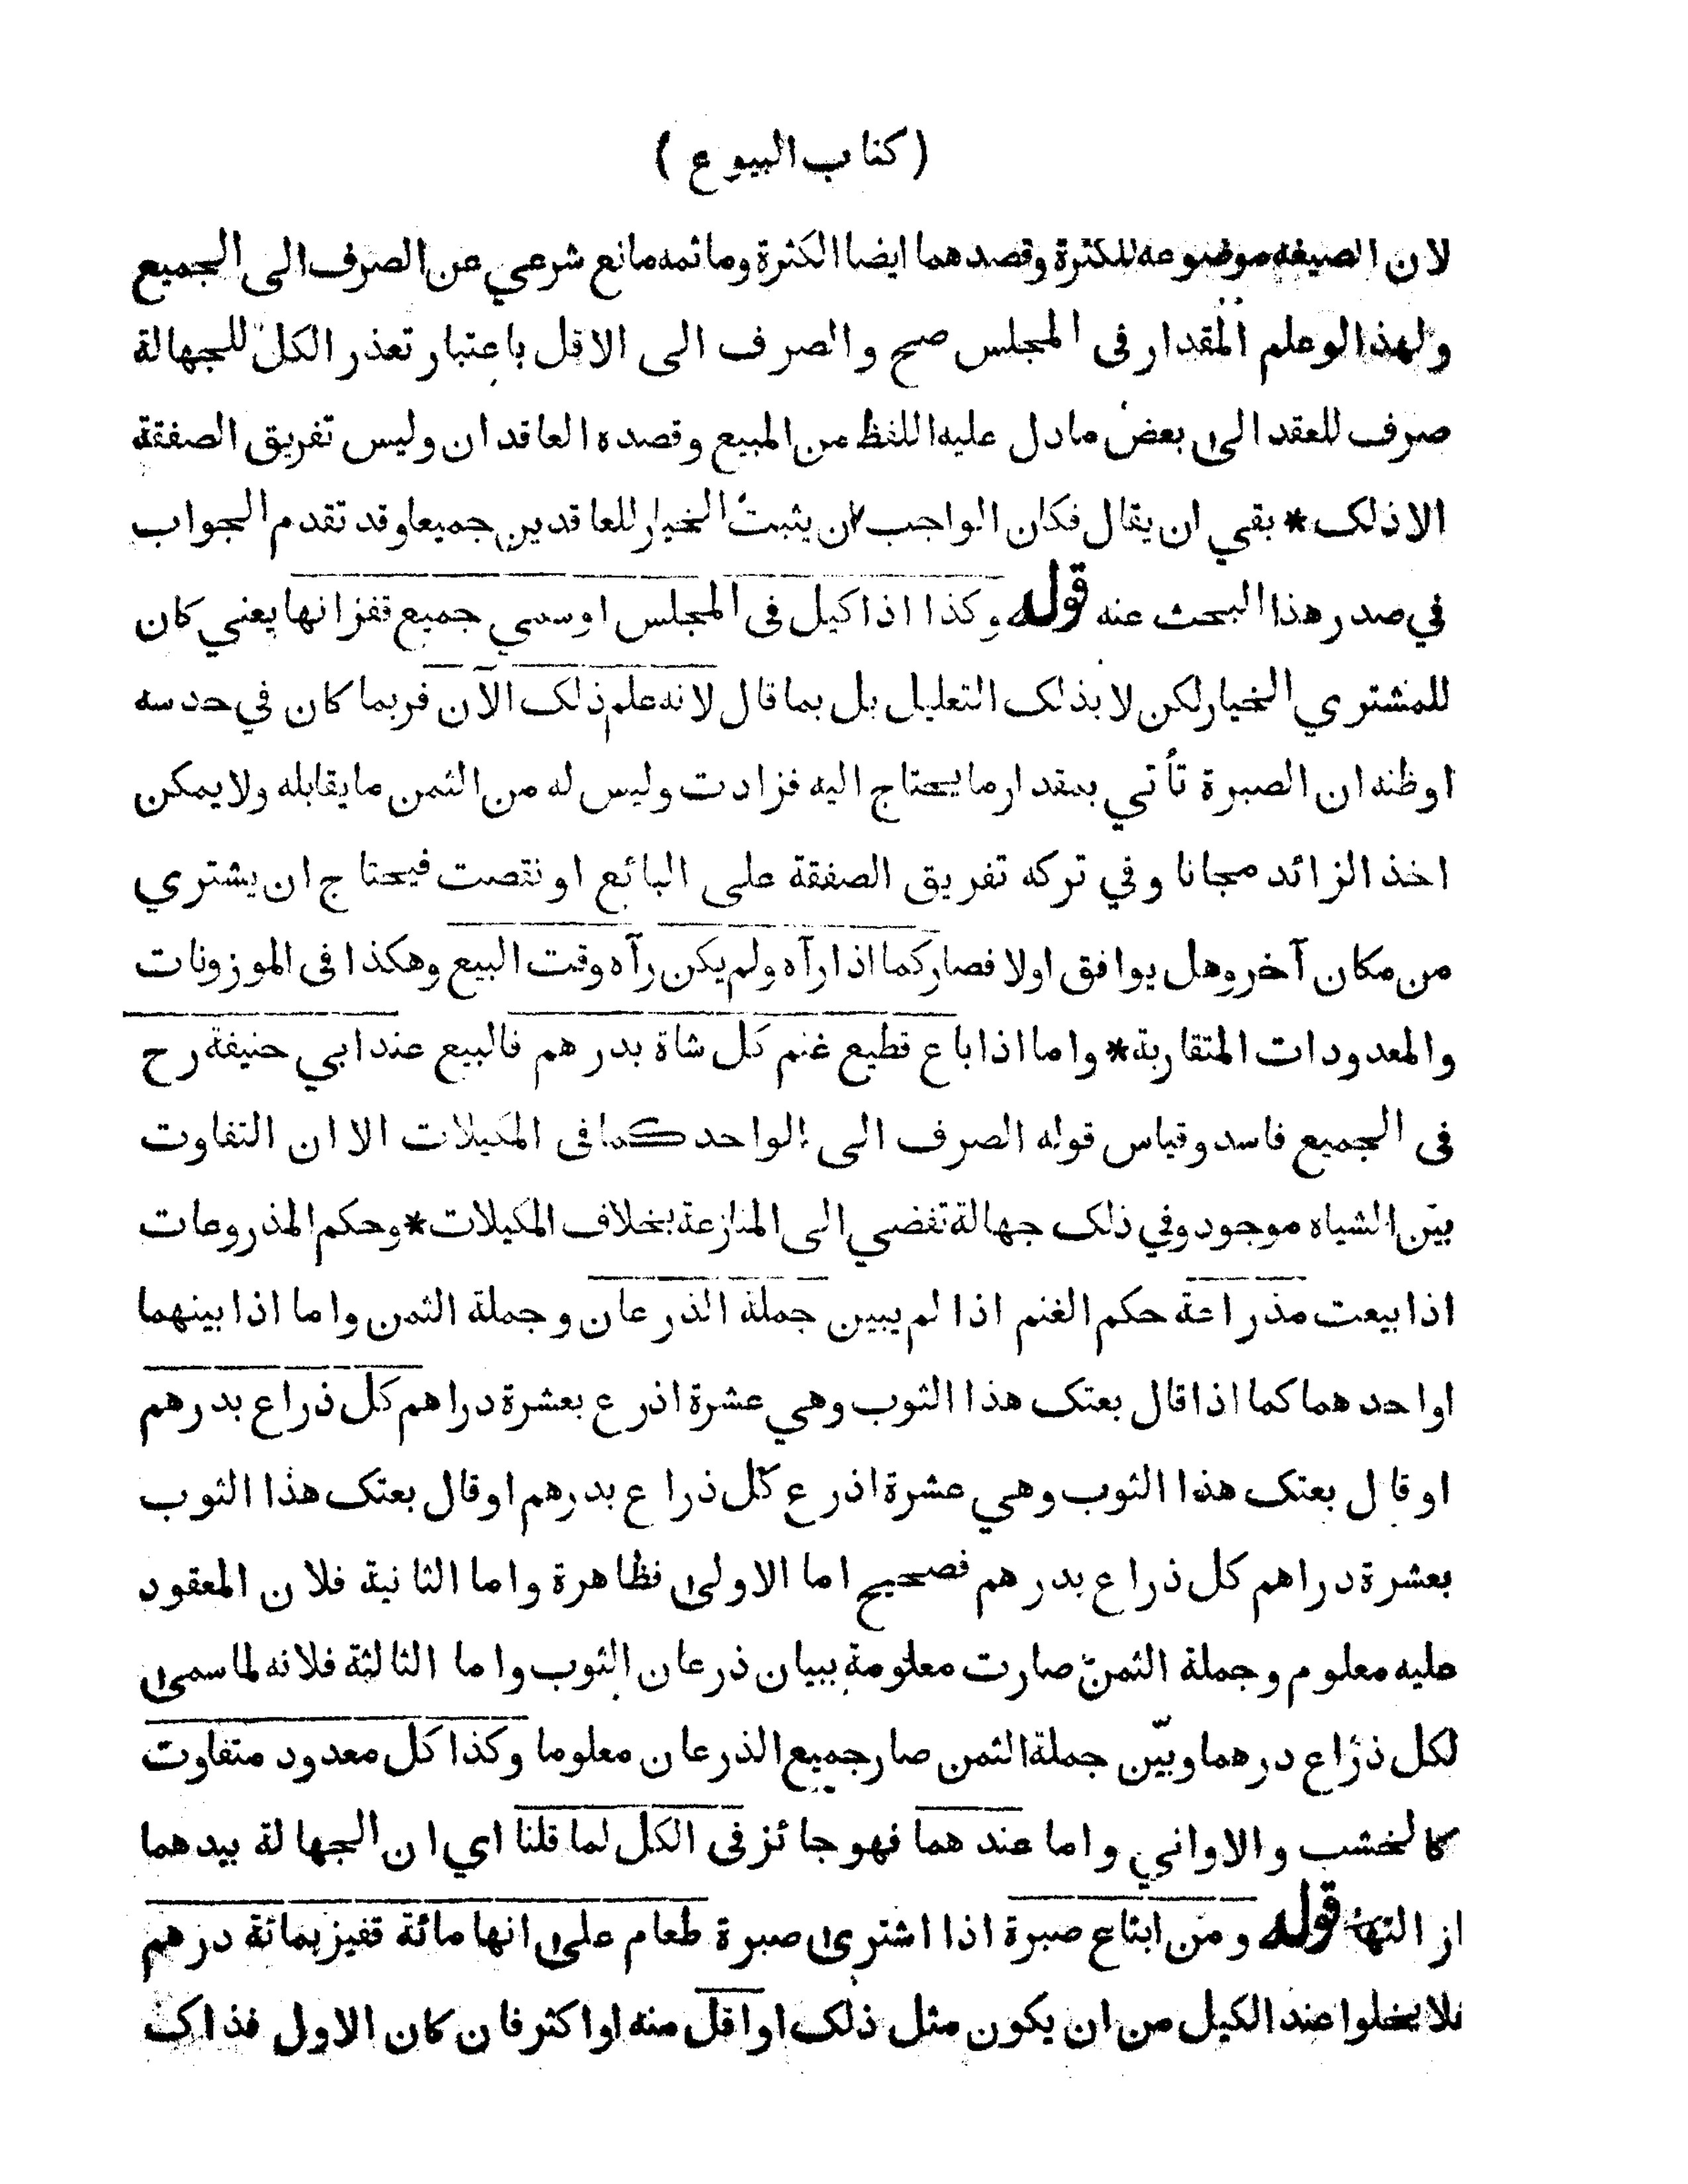 ( كتاب البيوع )
لان الصيغه موضوعه للكثرة وقصدهما ايضا الكثرة وما ثمه مانع شرعي عن الصرف الى الجميع
ولهذا لو علم المقدار فى المجلس صح والصرف الى الاقل باعتبار تعذر الكل للجهالة
صرف للعقد الى بعض ما دل عليه اللفظ من المبيع وقصده العاقدان وليس تفريق الصفقة
الا ذلك * بقي ان يقال فكان الواجب ان يثبت الخيار للعاقدين جميعا وقد تقدم الجواب
في صدر هذا البحث عنه قوله وكذا اذا كيل فى المجلس او سمى جميع قفزانها يعني كان
للمشتري الخيار لكن لا بذلك التعليل بل بما قال لانه علم ذلك الآن فربما كان في حدسه
او ظنه ان الصبرة تأتي بمقدار ما يحتاج اليه فزادت وليس له من الثمن ما يقابله ولا يمكن
اخذ الزائد مجانا وفي تركه تفريق الصفقة على البائع او نقصت فيحتاج ان يشتري
من مكان آخر وهل يوافق اولا فصار كما اذا رآه ولم يكن رآه وقت البيع وهكذا فى الموزونات
والمعدودات المتقاربة * واما اذا باع قطيع غنم كل شاة بدرهم فالبيع عند ابي حنيفة رح
فى الجميع فاسد وقياس قوله الصرف الى الواحد كما فى المكيلات الا ان التفاوت
بين الشياه موجود وفي ذلك جهالة تفضي الى المنازعة بخلاف المكيلات * وحكم المذروعات
اذا بيعت مذراعة حكم الغنم اذا لم يبين جملة الذرعان وجملة الثمن واما اذا بينهما
او احدهما كما اذا قال بعتك هذا الثوب وهي عشرة اذرع بعشرة دراهم كل ذراع بدرهم
او قال بعتك هذا الثوب وهي عشرة اذرع كل ذراع بدرهم او قال بعتك هذا الثوب
بعشرة دراهم كل ذراع بدرهم فصحيح اما الاولى فظاهرة واما الثانية فلان المعقود
عليه معلوم وجملة الثمن صارت معلومة ببيان ذرعان الثوب واما الثالثة فلانه لما سمى
لكل ذراع درهما وبيّن جملة الثمن صار جميع الذرعان معلوما وكذا كل معدود متفاوت
كالخشب والاواني واما عندهما فهو جائز فى الكل لما قلنا اي ان الجهالة بيدهما
ازالتها قوله ومن ابتاع صبرة اذا اشترى صبرة طعام على انها مائة قفيز بمائة درهم
فلا يخلوا عند الكيل من ان يكون مثل ذلك او اقل منه او اكثر فان كان الاول فذاك